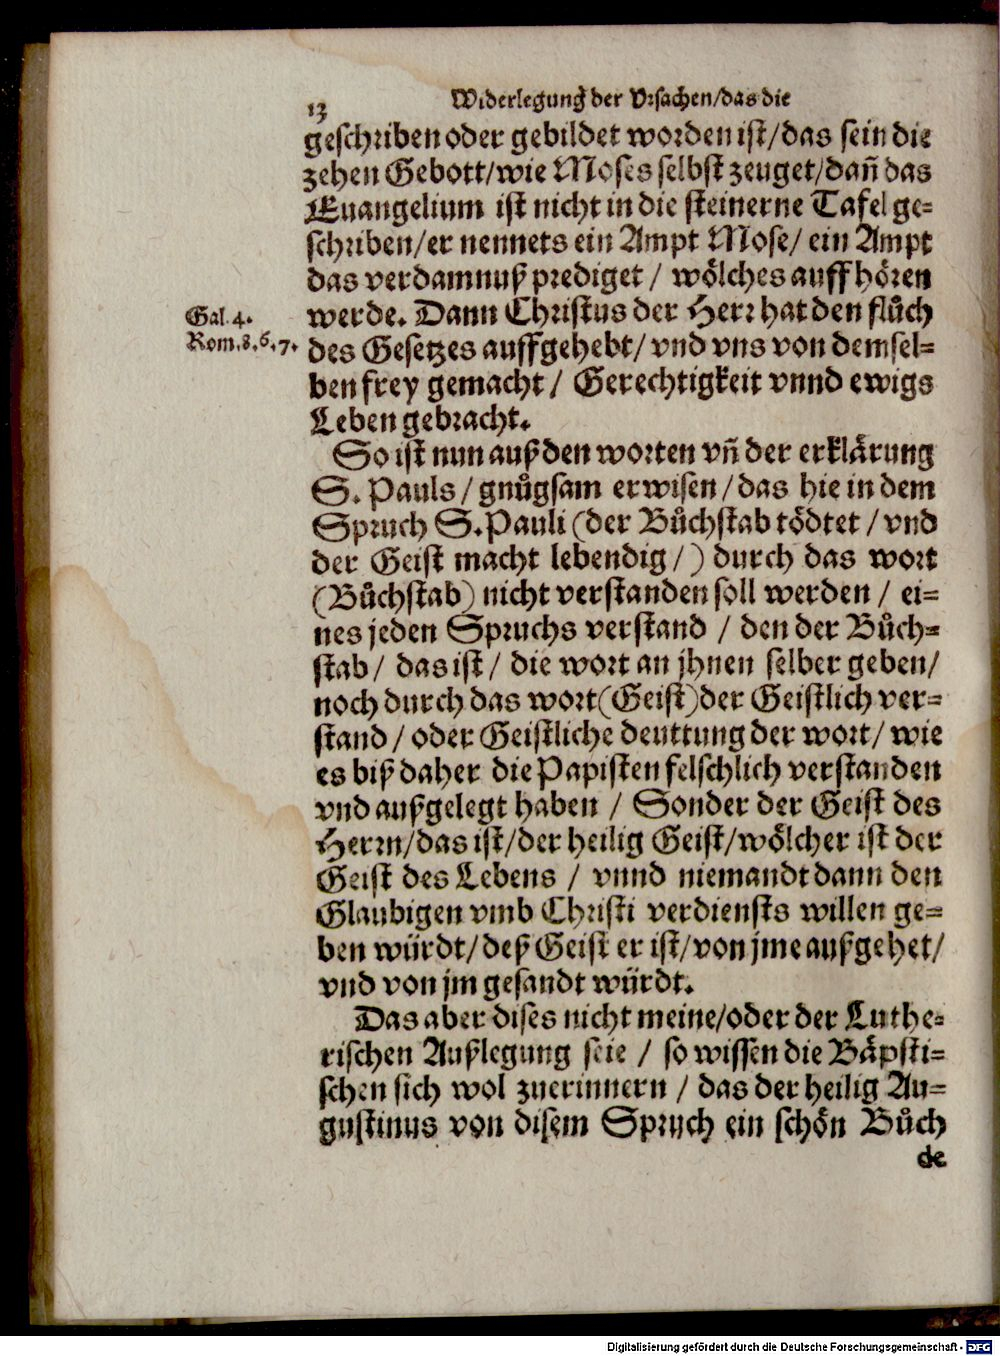 13
Widerlegung der Vrsachen/das die
geschriben oder gebildet worden ist/das sein die
zehen Gebott/wie Moses selbst zeuget/dañ das
Euangelium ist nicht in die steinerne Tafel ge=
schriben/er nennets ein Ampt Mose/ ein Ampt
das verdamnuß prediget / woͤlches auff hoͤren
werde. Dann Christus der Herr hat den fluͦch
Gal. 4.
Rom.8.6.7.
des Gesetzes auffgehebt/ vnd vns von demsel=
ben frey gemacht / Gerechtigkeit vnnd ewigs
Leben gebracht.
So ist nun auß den worten vñ der erklaͤrung
S. Pauls / gnuͦgsam erwisen / das hie in dem
Spruch S. Pauli (der Buͦchstab toͤdtet / vnd
der Geist macht lebendig /) durch das wort
(Buͦchstab) nicht verstanden soll werden / ei=
nes jeden Spruchs verstand / den der Buͦch=
stab / das ist / die wort an jhnen selber geben/
noch durch das wort (Geist) der Geistlich ver=
stand / oder Geistliche deuttung der wort/ wie
es biß daher die Papisten felschlich verstanden
vnd außgelegt haben / Sonder der Geist des
Herrn/das ist/der heilig Geist/woͤlcher ist der
Geist des Lebens / vnnd niemandt dann den
Glaubigen vmb Christi verdiensts willen ge=
ben würdt/deß Geist er ist/von jme außgehet/
vnd von jm gesandt würdt.
Das aber dises nicht meine/oder der Luthe=
rischen Außlegung seie / so wissen die Baͤpsti=
schen sich wol zuerinnern / das der heilig Au=
gustinus von disem Spruch ein schoͤn Buͦch
de
Digitalisierung gefördert durch die Deutsche Forschungsgemeinschaft - DFG